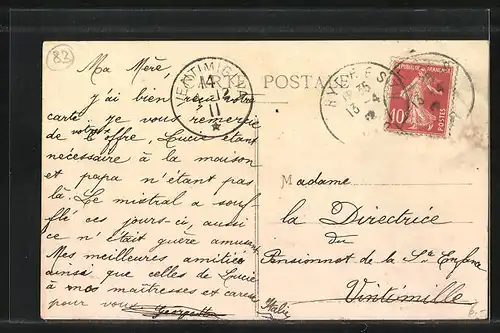 83
Ma Mère,
J'ai bien reçu votre
carte, je vous remercie
de l'offre, Lucie étant
votre
nécessaire à la maison
et papa n'étant pas
là. Le mistral a souf-
flé ces jours-ci, aussi
ce n'était guère amusant
Mes meilleures amitiés
ainsi que celles de Lucie
à mes maîtresses et
pour vous Georgette
VENTIMIGLIA
14
11
CARTE POSTALE
HYÈRES
13 4
REPUBLIQUE FRANÇAISE
10
POSTES
Madame
la Directrice
du
Pensionnat de la Ste Enfance
Vintimille
Italie
6,-